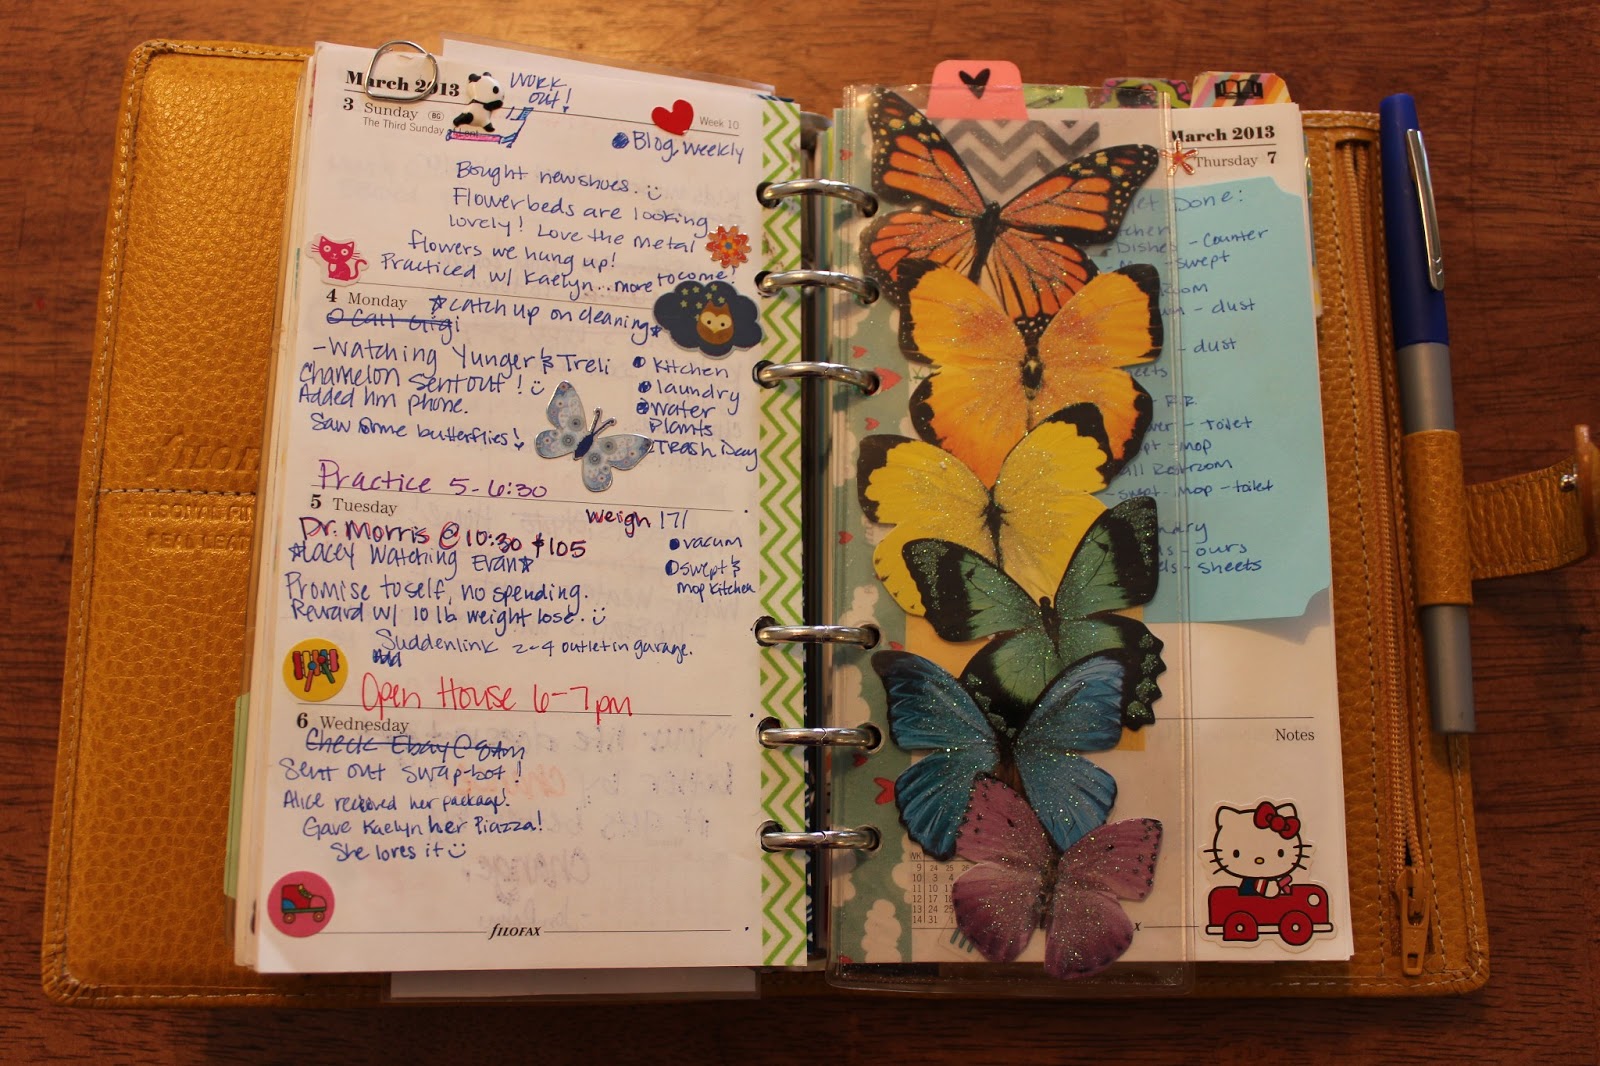 March 2013
WORK
OUT!
3 Sunday BG
The Third Sunday of Lent
Week 10
Blog weekly
Bought new shoes.
Flowerbeds are looking
lovely! Love the metal
flowers we hung up!
Practiced w/ Kaelyn...more to come!
4 Monday
☆Catch up on cleaning☆
Call Gigi
-Watching Yunger & Treli
Chamelon sent out!
Added hm phone.
Saw some butterflies!
Kitchen
laundry
water
Plants
Trash Day
Practice 5-6:30
5 Tuesday
weigh 171
Dr. Morris @ 10:30 $105
☆Lacey Watching Evan☆
Promise to self, no spending.
Reward w/ 10 lb weight lose.
vacum
swept &
mop kitchen
Suddenlink 2-4 outlet in garage.
Open House 6-7pm
6 Wednesday
Check Ebay @ 8am
Sent out swap-bot!
Alice received her package!
Gave Kaelyn her Piazza!
She loves it
filofax
March 2013
Thursday 7
Done:
Dishes - Counter
- swept
- dust
- dust
- R.R.
- toilet
- mop
Restroom
- swept - mop - toilet
- ours
- sheets
Notes
WK
9
10
11
12
13
14
filofax
PERSONAL